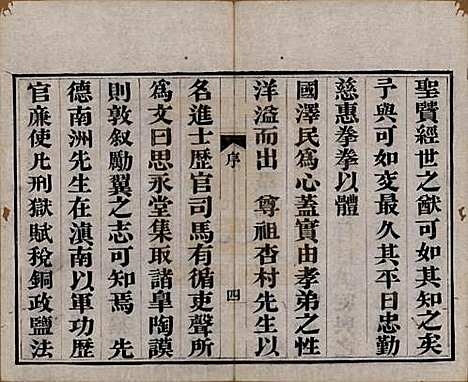 聖賢經世之猷可與其知之矣
予與可如交最久其平日忠勤
慈惠拳拳以體
國澤民爲心蓋實由孝弟之性
洋溢而出　尊祖杏村先生以
序
四
名進士歷官司馬有循吏聲所
爲文曰思永堂集取諸皐陶謨
則敦敘勵翼之志可知焉　先
德南洲先生在滇南以軍功歷
官廉使凡刑獄賦稅銅政鹽法